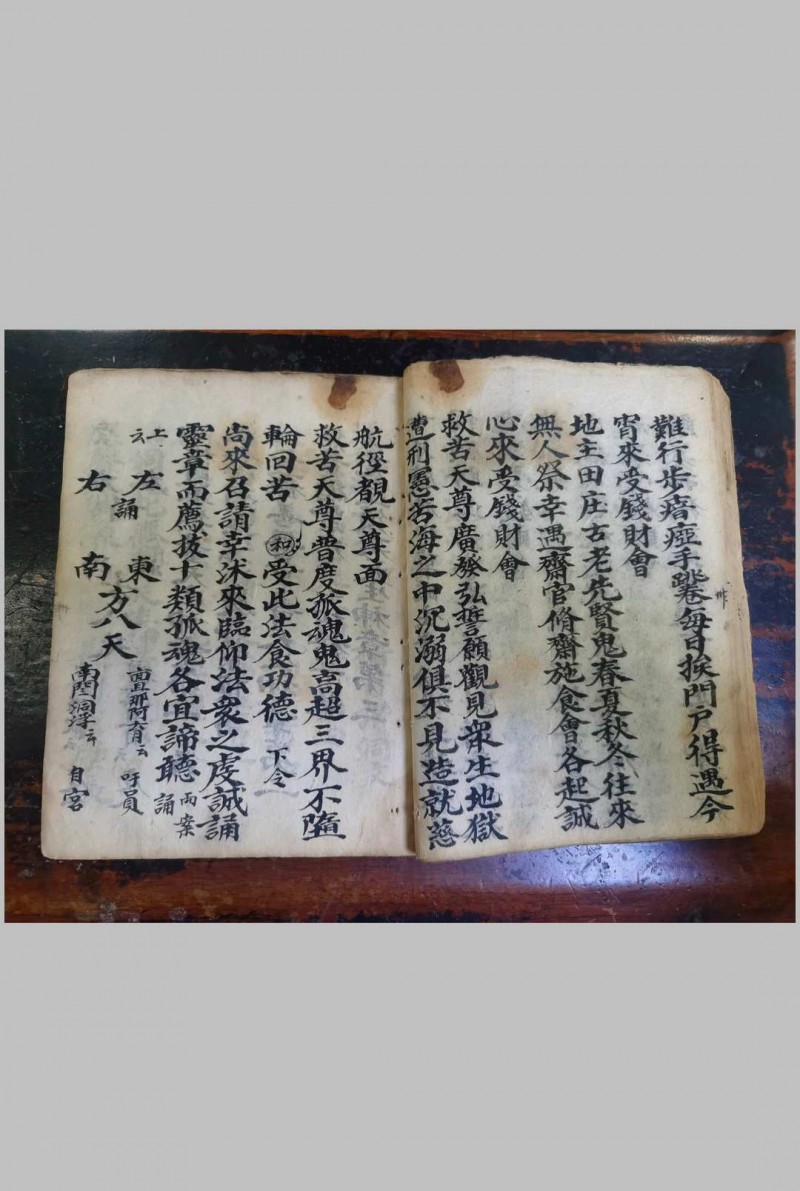 難行步瘖瘂手踡每日挨門戶得遇今
宵來受錢財會
地主田庄古老先賢鬼春夏秋冬往來
無人祭幸遇齋官脩齋施食會各起誠
心來受錢財會
救苦天尊廣發弘誓願觀見衆生地獄
遭刑憲苦海之中沉溺俱不見造就慈
航徑覩天尊面
救苦天尊普度孤魂鬼高超三界不墮
輪回苦 和 受此法食功德 下令
尚來召請幸沐來臨仰法衆之虔誠誦
靈章而薦拔十類孤魂各宜諦聽 兩案 誦
上云 左 東 亶婁那阿育云 吁員
誦 方八天
右 南 南閻洞浮云 自宮